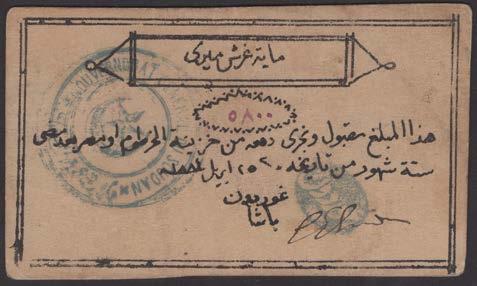 ماية غرش ميرى
٥٨٠٠
هذا المبلغ مقبول ويجرى دفعه من خزينة الخرطوم او مصر بعد مضى
ستة شهور من تاريخه ٢٥ ابريل ١٨٨٤
غوردون
باشا
SOUDAN